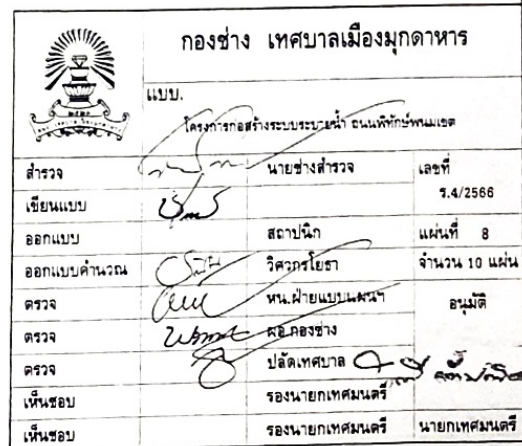 กองช่าง เทศบาลเมืองมุกดาหาร
แบบ.
โครงการก่อสร้างระบบระบายน้ำ ถนนพิทักษ์พนมเขต
สำรวจ นายช่างสำรวจ เลขที่
ร.4/2566
เขียนแบบ
ออกแบบ สถาปนิก แผ่นที่ 8
ออกแบบคำนวณ วิศวกรโยธา จำนวน 10 แผ่น
ตรวจ หน.ฝ่ายแบบแผนฯ อนุมัติ
ตรวจ ผอ.กองช่าง
ตรวจ ปลัดเทศบาล
เห็นชอบ รองนายกเทศมนตรี
เห็นชอบ รองนายกเทศมนตรี นายกเทศมนตรี